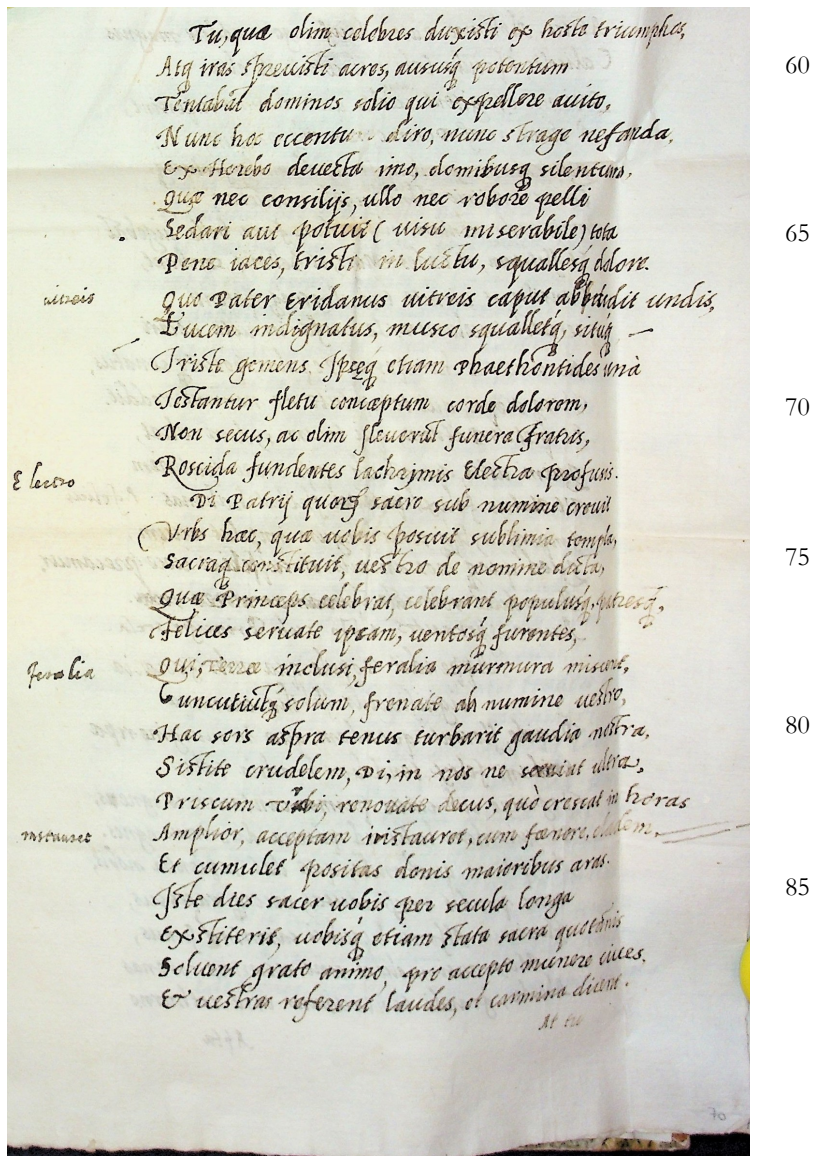 Tu, quæ olim celebres duxisti ex hoste triumphos,
Atq iras spreuisti acres, aususq potentum
60
Tentabat dominos solio qui expellere auito,
Nunc hoc euentu diro, nunc strage nefanda,
Ex Herebo deuecta imo, domibusq silentum,
Quæ nec consilijs, ullo nec robore pelli
Sedari aut potuit (uisu miserabile) tota
65
Pene iaces, tristi in luctu, squallesq dolore.
uitreis
Quo Pater Eridanus uitreis caput abdidit undis,
Lucem indignatus, musco squalletq, situq
Triste gemens. Ipseq etiam Phaethontides unà
Testantur fletu conceptum corde dolorem,
70
Non secus, ac olim fleuerat funera fratris,
Roscida fundentes lachrjmis Electra profusis.
Electro
Di Patrij quorum sacro sub numine creuit
Vrbs hæc, quæ uobis posuit sublimia templa,
Sacraq constituit, uestro de nomine dicta,
75
Quæ Princeps celebrat, celebrant populusq, patresq,
Felices seruate ipsam, uentosq furentes,
Qui, terræ inclusi, feralia murmura miscent,
feralia
Cuncutiutq solum, frenate ab numine uestro,
Hac sors aspra tenus turbarit gaudia nostra,
80
Sistite crudelem, Di, in nos ne sæuiat ultra,
Priscum Vrbi, renouate decus, quò crescat in horas
Amplior, acceptam instauret, cum fænore, cladem,
instauret
Et cumulet positas donis maioribus aras.
Iste dies sacer uobis per secula longa
85
Exstiterit, uobisq etiam stata sacra quotannis
Soluent grato animo, pro accepto munere ciues,
Et uestras referent laudes, et carmina dicent.
At tu
70